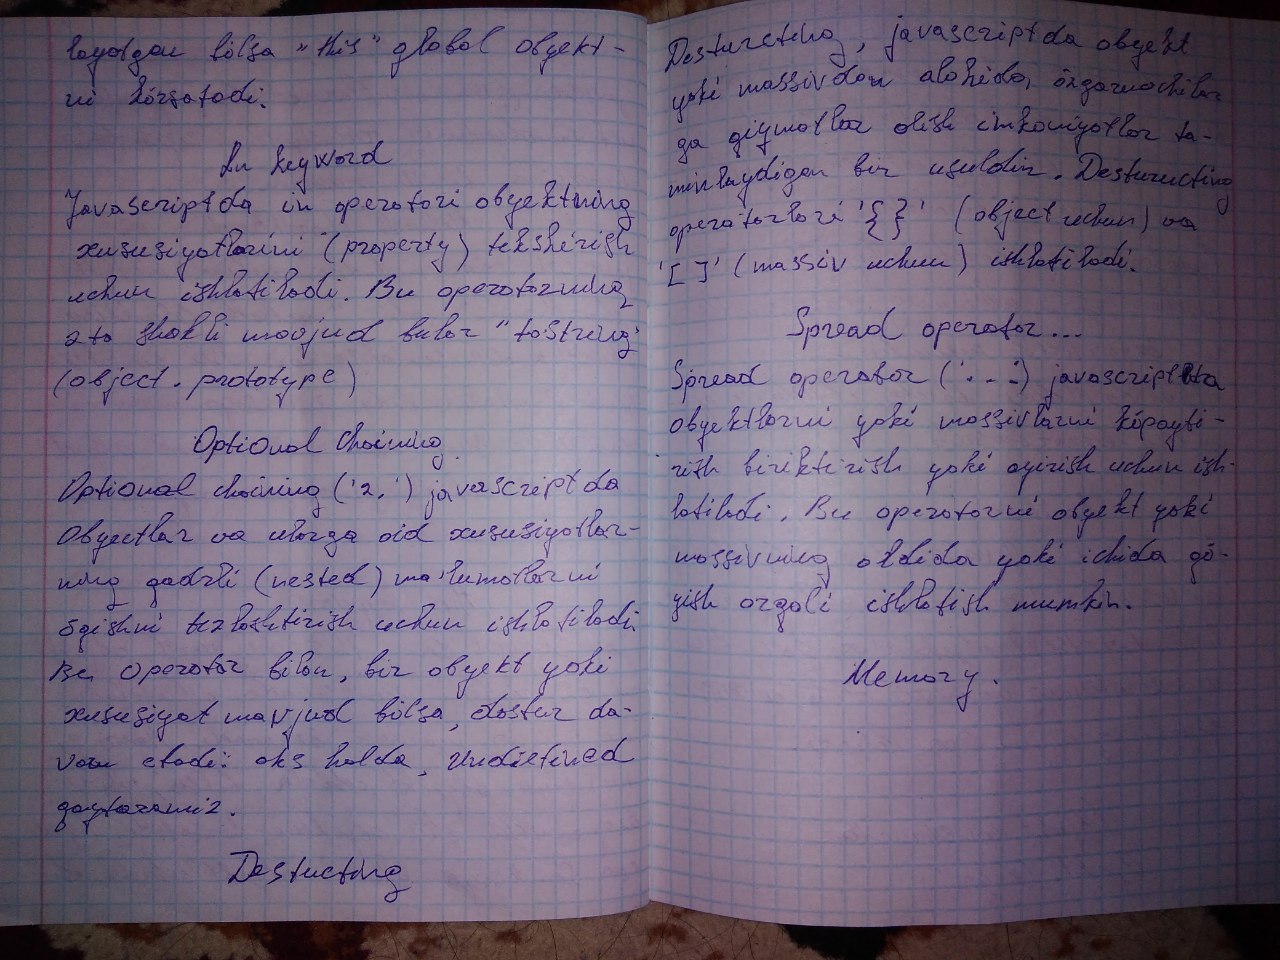 layotgan bõlsa "this" global obyekt-
ni kõrsatadi.
In keyword
Javascriptda in operatori obyektning
xususiyatlarini (property) tekshirish
uchun ishlatiladi. Bu operatorning
2 ta shakli mavjud bular "toString"
(object . prototype)
Optional chaining
Optional chaining ('?.') javascriptda
Obyectlar va ularga oid xususiyatlar-
ning qadrli (nested) ma'lumotlarni
õqishni tezlashtirish uchun ishlatiladi.
Bu operator bilan, bir obyekt yoki
xususiyat mavjud bõlsa, dastur da-
vom etadi: aks holda, undietined
qaytaramiz.
Destucting
Desturcting, javascriptda obyekt
yoki massivdan alohida, õzgaruvchilar
ga qiymatlar olish imkoniyatlar ta-
minlaydigan bir usuldir. Desturucting
operatorlari '{ }' (object uchun) va
'[ ]' (massiv uchun) ishlatiladi.
Spread operator...
Spread operator ('...') javascriptda
obyektlarni yoki massivlarni kõpayti-
rish biriktirish yoki ayirish uchun ish-
latiladi. Bu operatorni obyekt yoki
massivning oldida yoki ichida qõ-
yish orqali ishlatish mumkin.
Memory.